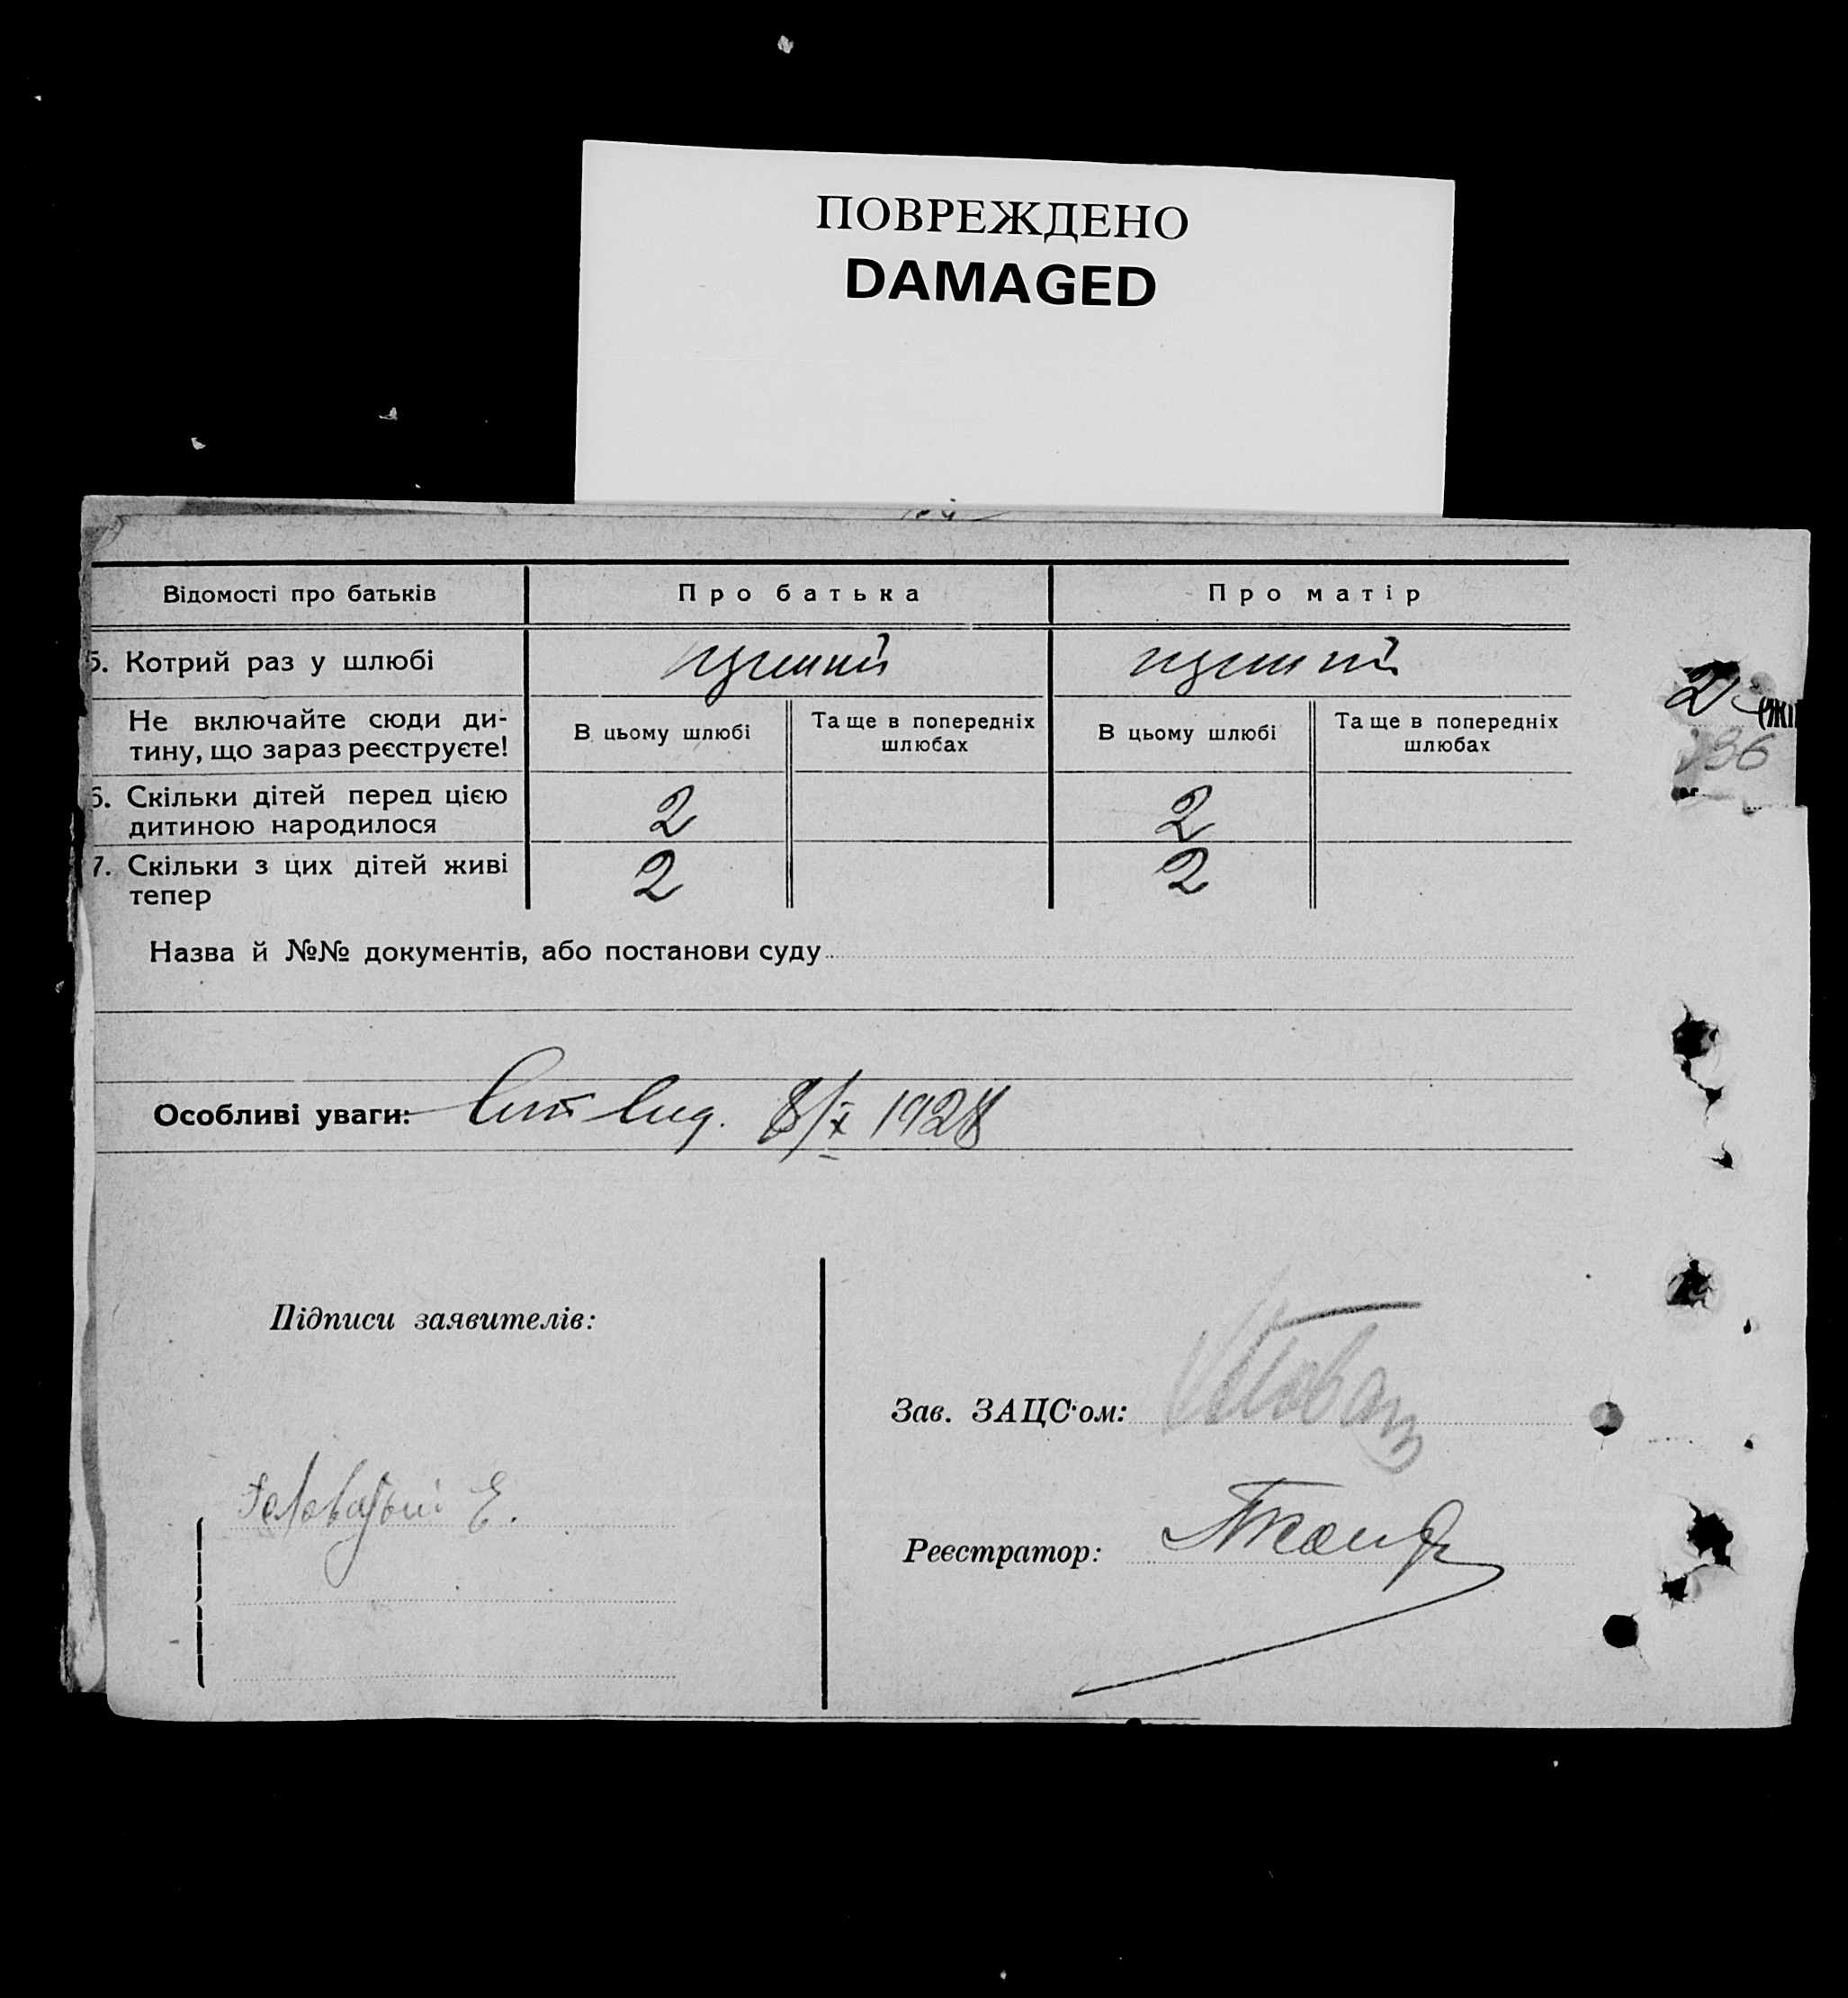 ПОВРЕЖДЕНО
DAMAGED
Відомості про батьків
Про батька
Про матір
5. Котрий раз у шлюбі
Не включайте сюди ди-
тину, що зараз реєструєте!
В цьому шлюбі
Та ще в попередніх
шлюбах
В цьому шлюбі
Та ще в попередніх
шлюбах
6. Скільки дітей перед цією
дитиною народилося
2
2
7. Скільки з цих дітей живі
тепер
2
2
Назва й №№ документів, або постанови суду
Особливі уваги: 8/X 1928
Підписи заявителів:
Зав. ЗАЦС'ом:
Реєстратор: